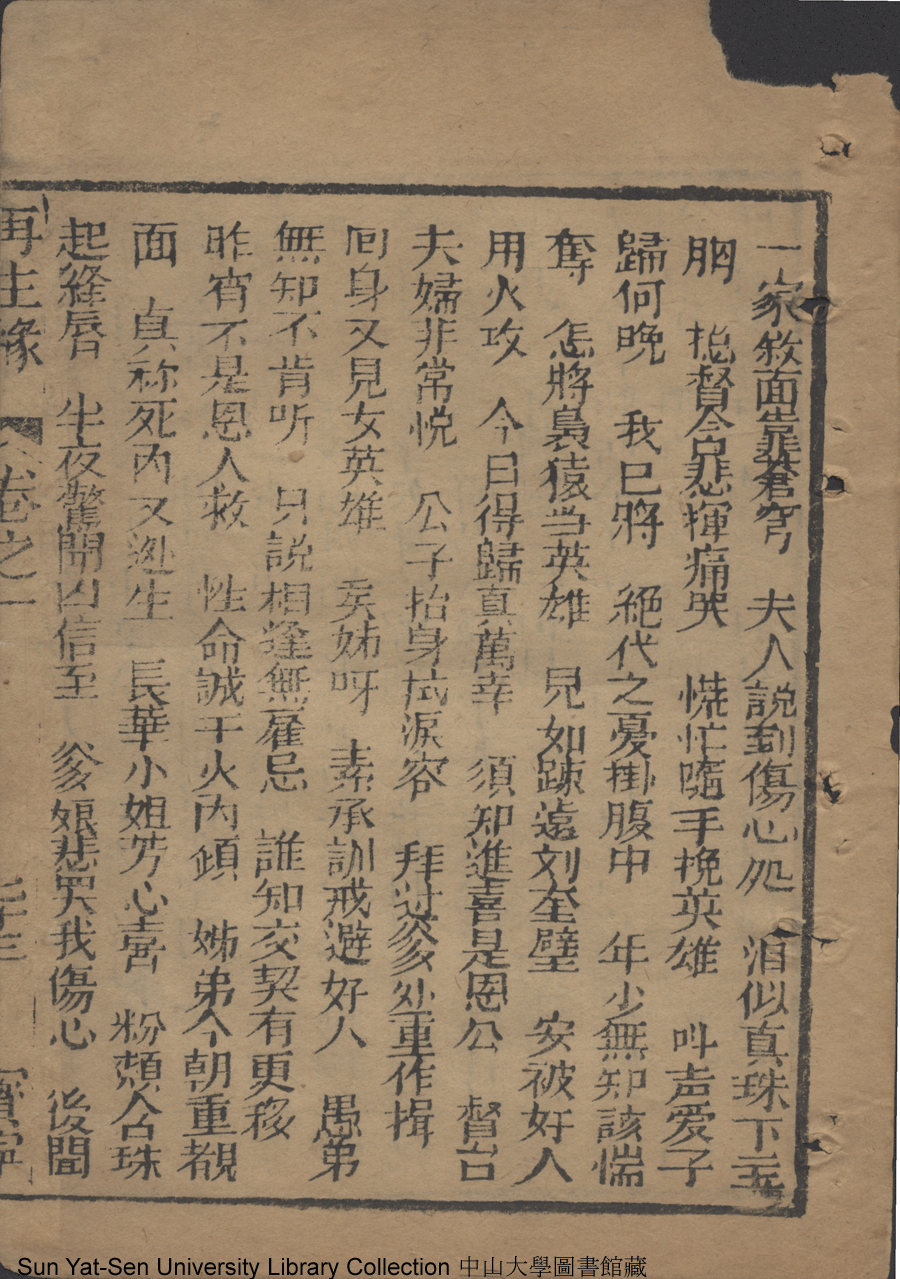 一家敘面靠蒼穹　夫人説到傷心処　泪似真珠下
胸　督台悲揮痛哭　慌忙隨手挽英雄　叫声爱子
歸何晚　我已將　絕代之憂掛腹中　年少無知該惴
奪　怎將裊猿当英雄　見如踈遠刘奎壁　安被奸人
用火攻　今日得歸真萬幸　須知進喜是恩公　督台
夫婦非常悦　公子抬身拭淚容　拜过爹爹重作揖
囘身又見女英雄　姊呀　素承訓戒避奸人　愚弟
無知不肯听　只説相逢無雇忌　誰知交契有更移
昨宵不是恩人救　性命誠于火内傾　姊弟今朝重覩
面　真称死内又逃生　長華小姐芳心喜　粉頰含珠
起絳唇　半夜驚聞凶信至　爹娘悲哭我傷心　後聞
再生緣　卷之一　寳寧
Sun Yat-Sen University Library Collection 中山大學圖書館藏